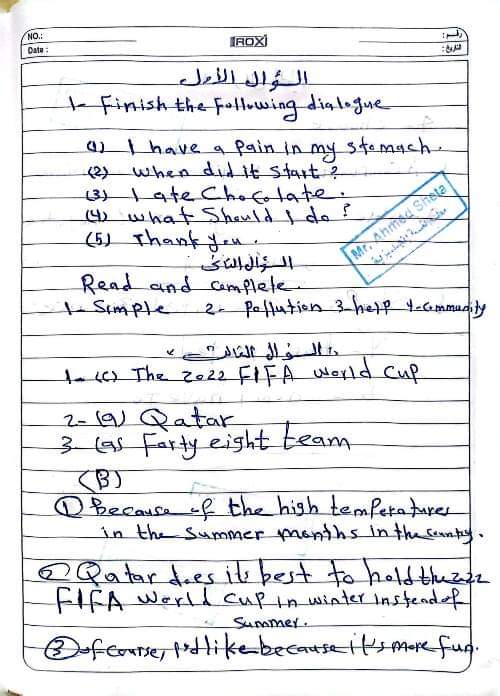 NO.:
ROX
رقم:
Date :
التاريخ:
السؤال الأول
1- Finish the following dialogue
(1) I have a pain in my stomach.
(2) When did it start?
(3) I ate chocolate.
(4) What should I do?
(5) Thank you.
Mr. Ahmed Sheta
السؤال الثانى
Read and complete.
1- Simple 2- pollution 3- help 4- community
السؤال الثالث
1- (c) The 2022 FIFA World Cup
2- (a) Qatar
3 (a) Forty eight team
(B)
① Because of the high temperatures
in the summer months in the country.
② Qatar does its best to hold the 222
FIFA World Cup in winter instead of
summer.
③ of course, I'd like because it's more fun.